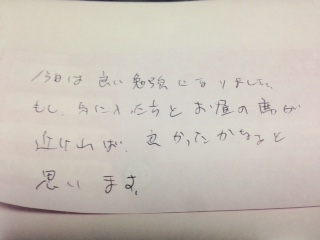 今日は良い勉強になりました。
もし、人たちとお昼の席が
近ければ、良かったかなぁと
思います。